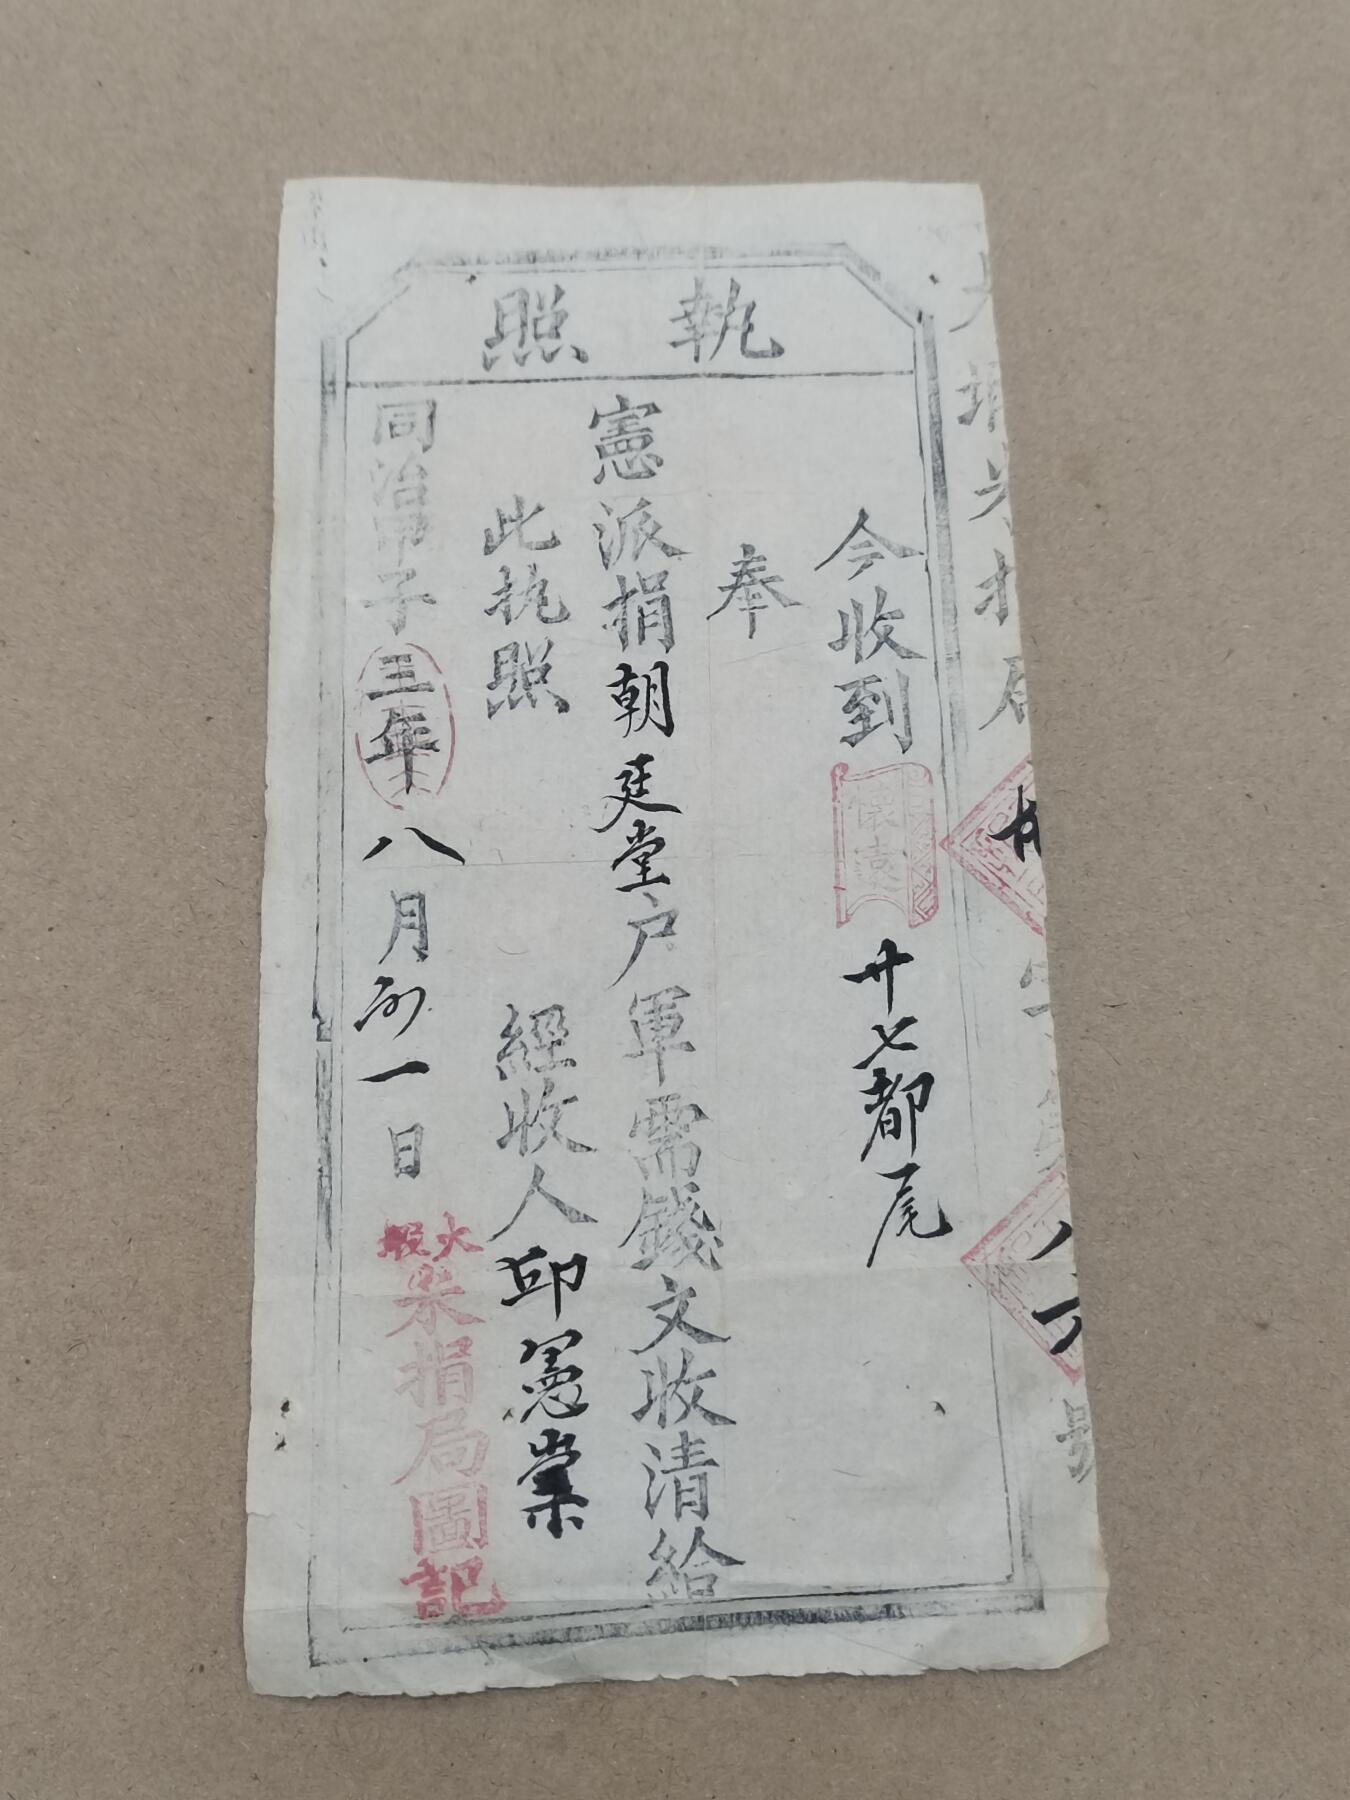 執照
今收到
懷遠
廿七都一尾
奉
憲派捐朝廷堂户軍需錢文收清給
此执照
經收人邱憲棠
同治甲子三年八月初一日
大㙇米捐局圖記
米捐局
號